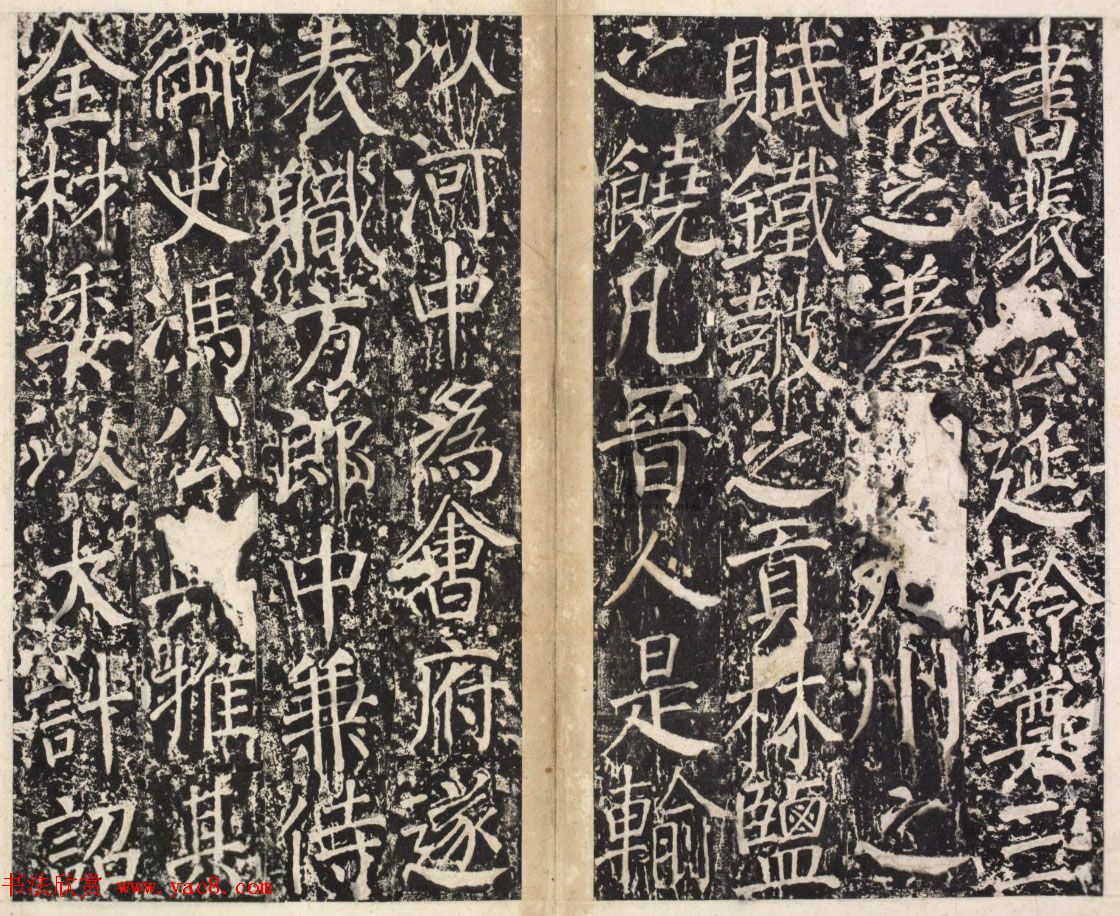 書裴公延齡奠三
壤之差
九州之
賦鐵鼓之貢林鹽
之饒凡晉人是輸
以河中為會府遂
表職方郎中兼侍
御史馮公
推其
全材委以大計詔
书法欣赏 www.yac8.com